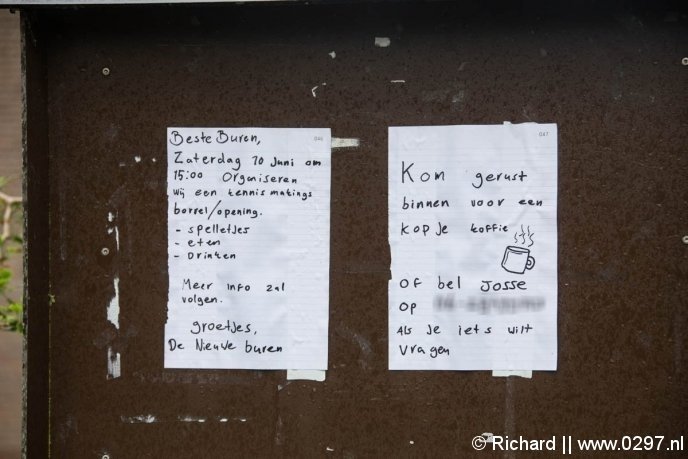 046
Beste Buren,
Zaterdag 10 Juni om
15:00 Organiseren
wij een kennismakings
borrel/opening.
- spelletjes
- eten
- Drinken
Meer info zal
volgen.
groetjes,
De Nieuwe buren
047
Kom gerust
binnen voor een
kopje koffie
of bel Josse
op
Als je iets wilt
vragen
© Richard || www.0297.nl